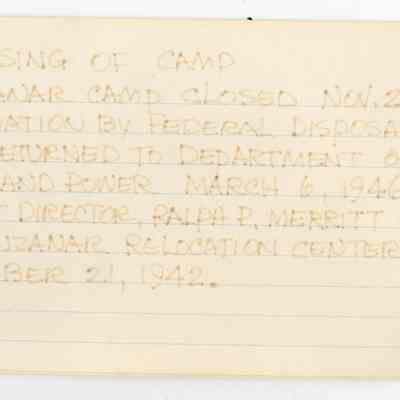 SING OF CAMP
ANAR CAMP CLOSED NOV. 2
ATION BY FEDERAL DISPOSA
ETURNED TO DEPARTMENT O
AND POWER MARCH 6, 1946
T DIRECTOR, RALPH P. MERRITT
NZANAR RELOCATION CENTER
BER 21, 1942.